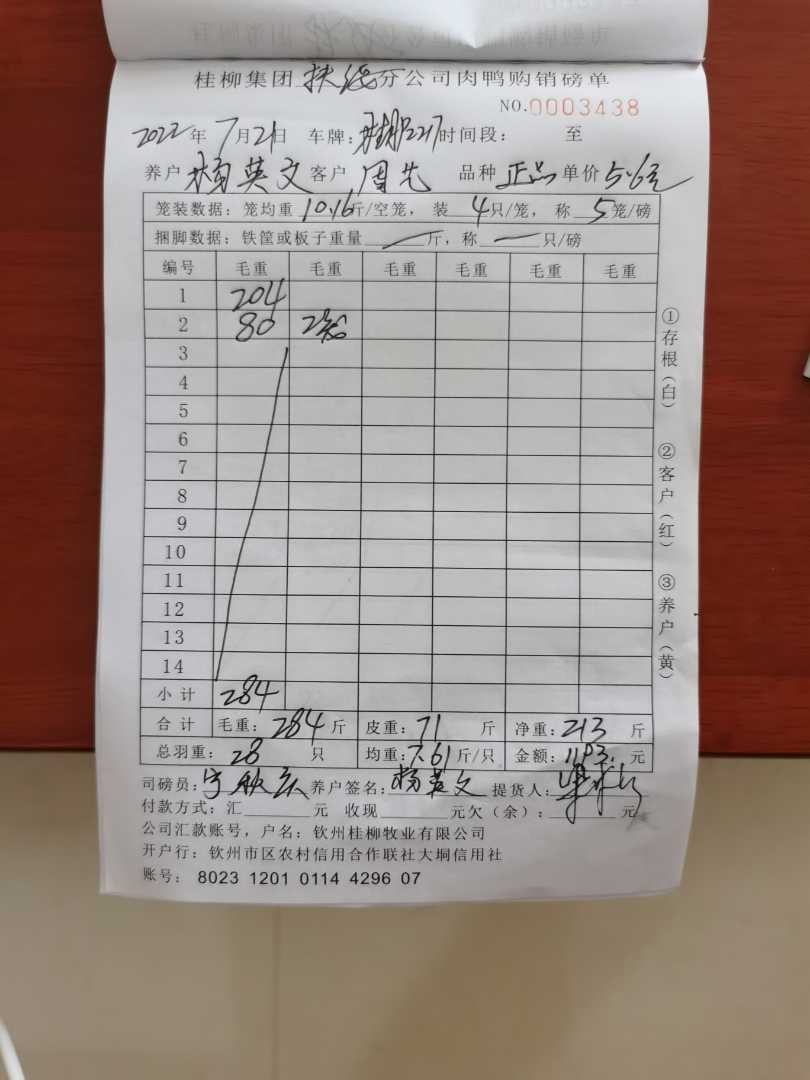 桂柳集团 扶绥 分公司肉鸭购销磅单
NO.0003438
2022年7月21日 车牌: 时间段: 至
养户 杨英文 客户 周先 品种 正品 单价 5.6元
笼装数据:笼均重 10.16 斤/空笼,装 4 只/笼,称 5 笼/磅
捆脚数据:铁筐或板子重量 一 斤,称 一 只/磅
编号 毛重 毛重 毛重 毛重 毛重 毛重
1 204
2 80 2笼
3
4
5
6
7
8
9
10
11
12
13
14
小计 284
合计 毛重:284斤 皮重:71 斤 净重:213 斤
总羽重:28 只 均重:7.61斤/只 金额:1193.元
司磅员: 养户签名:杨英文 提货人:
付款方式:汇 元 收现 元欠(余): 元
公司汇款账号,户名:钦州桂柳牧业有限公司
开户行:钦州市区农村信用合作联社大垌信用社
账号: 8023 1201 0114 4296 07
①存根(白) ②客户(红) ③养户(黄)